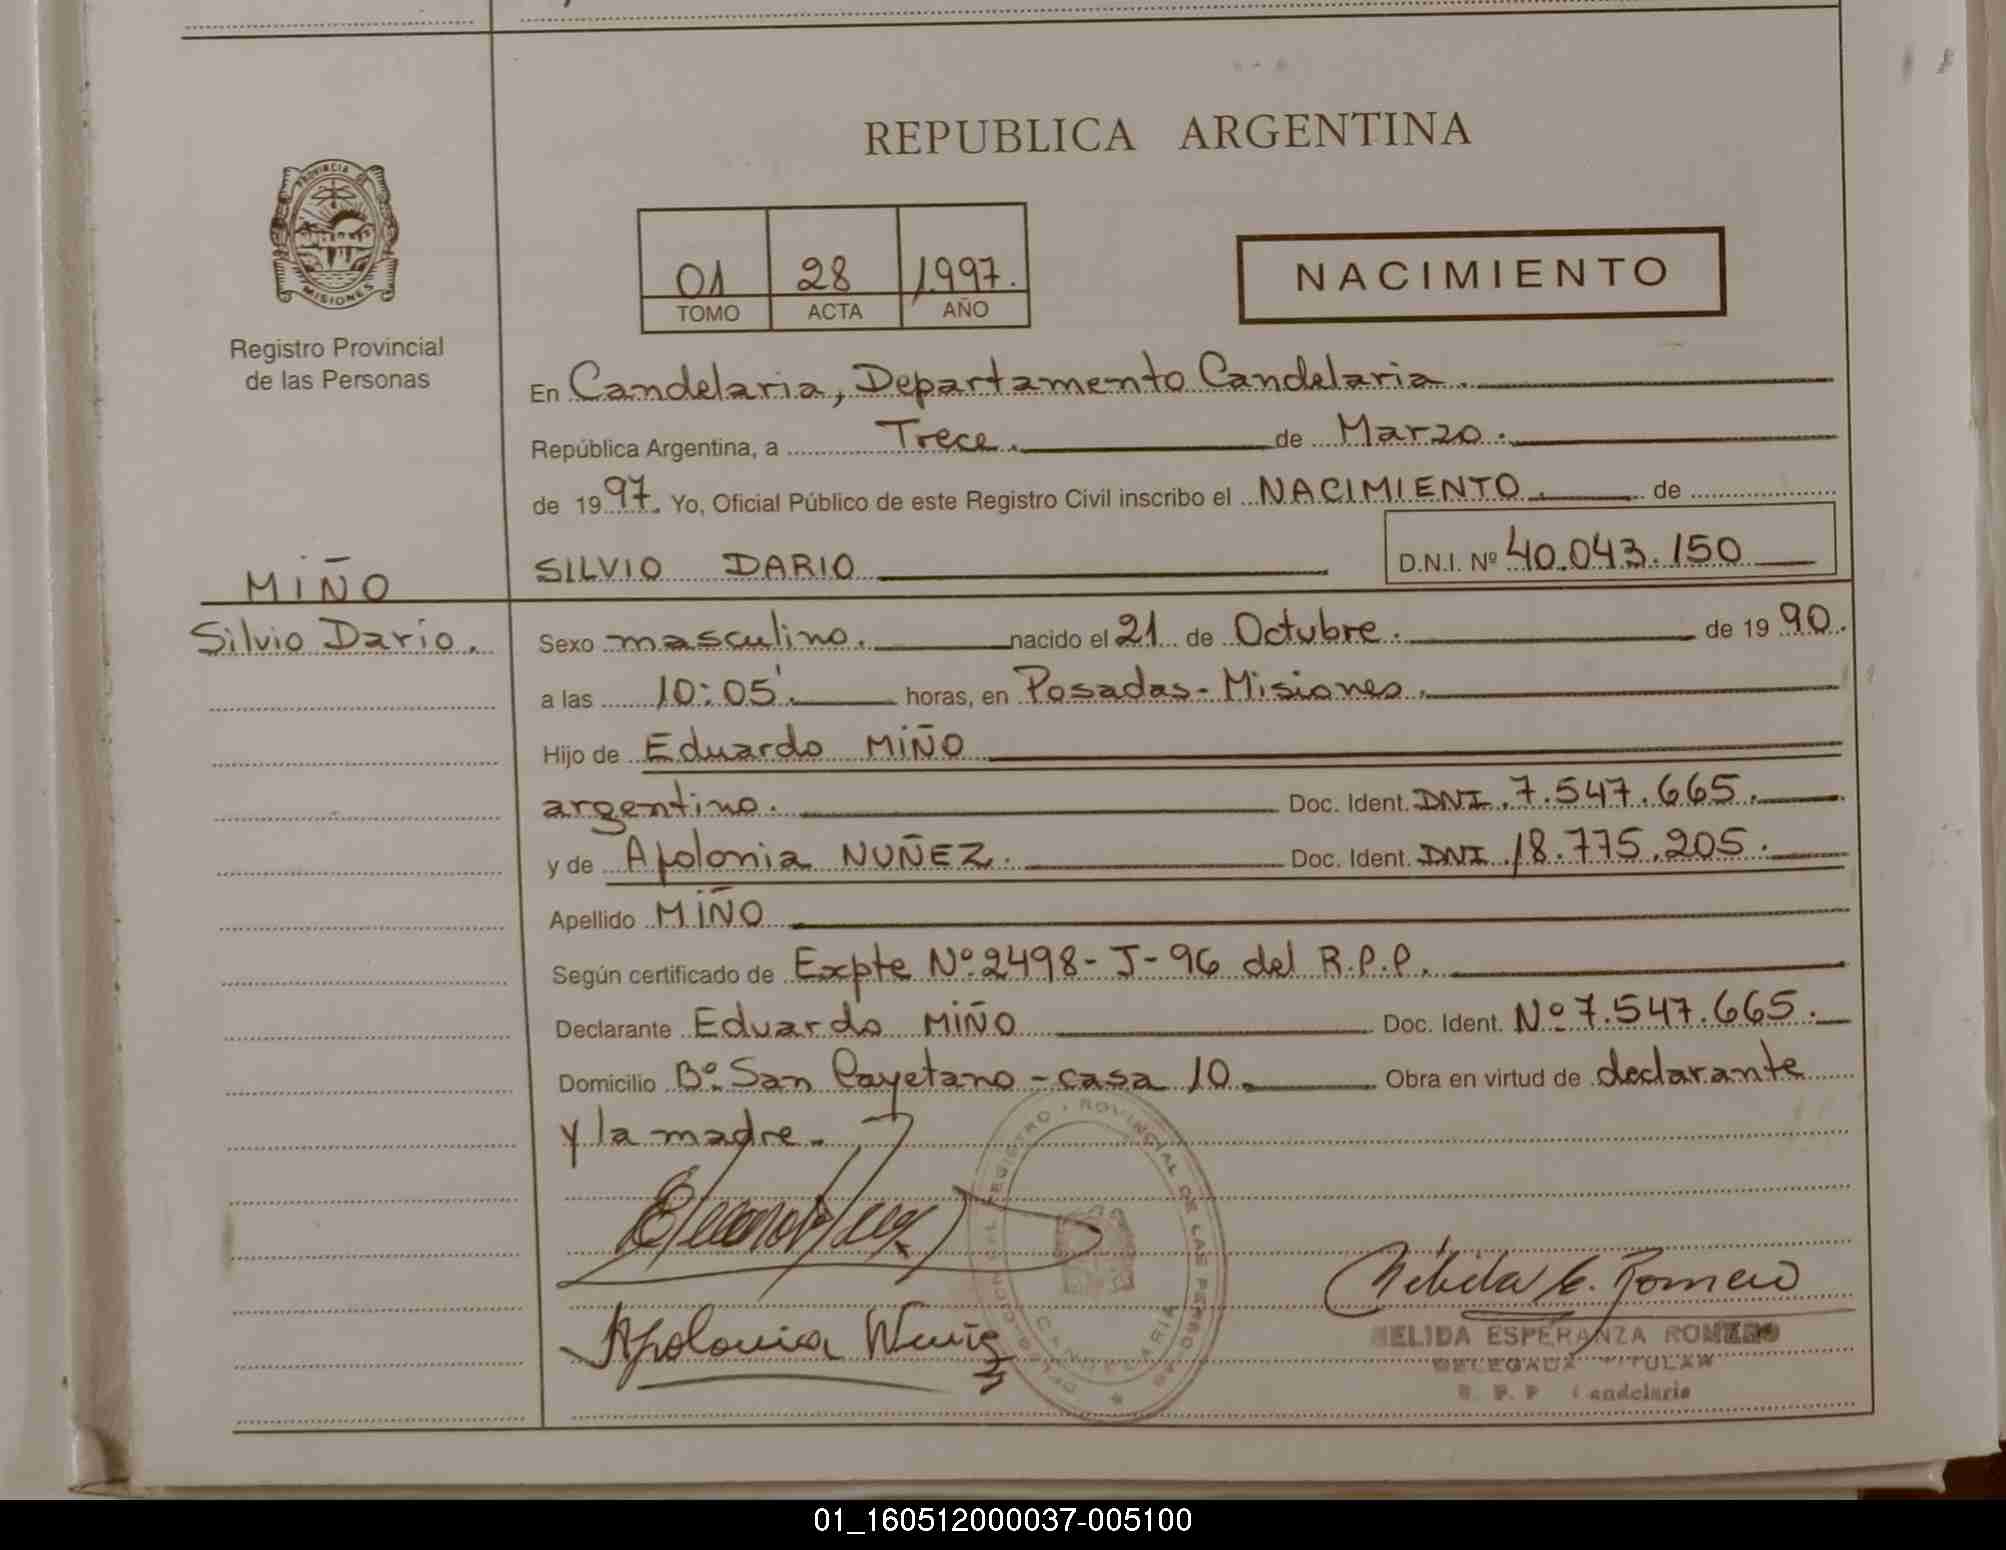 REPUBLICA ARGENTINA
PROVINCIA DE
MISIONES
Registro Provincial
de las Personas
01 28 1.997.
TOMO ACTA AÑO
NACIMIENTO
En Candelaria, Departamento Candelaria.
República Argentina, a Trece. de Marzo.
de 1997. Yo, Oficial Público de este Registro Civil inscribo el NACIMIENTO. de
SILVIO DARIO D.N.I. Nº 40.043.150
MIÑO
Silvio Dario.
Sexo masculino. nacido el 21 de Octubre. de 1990.
a las 10:05'. horas, en Posadas-Misiones.
Hijo de Eduardo MIÑO
argentino. Doc. Ident. DNI.7.547.665.
y de Apolonia NUÑEZ. Doc. Ident. DNI.18.775.205.
Apellido MIÑO
Según certificado de Expte Nº 2498-J-96 del R.P.P.
Declarante Eduardo MIÑO Doc. Ident. Nº 7.547.665.
Domicilio Bº San Cayetano - casa 10. Obra en virtud de declarante
y la madre.
REGISTRO PROVINCIAL DE LAS PERSONAS
CANDELARIA
Apolonia Nuñez
Nélida E. Romero
NELIDA ESPERANZA ROMERO
DELEGADA TITULAR
R. P. P. Candelaria
01_160512000037-005100